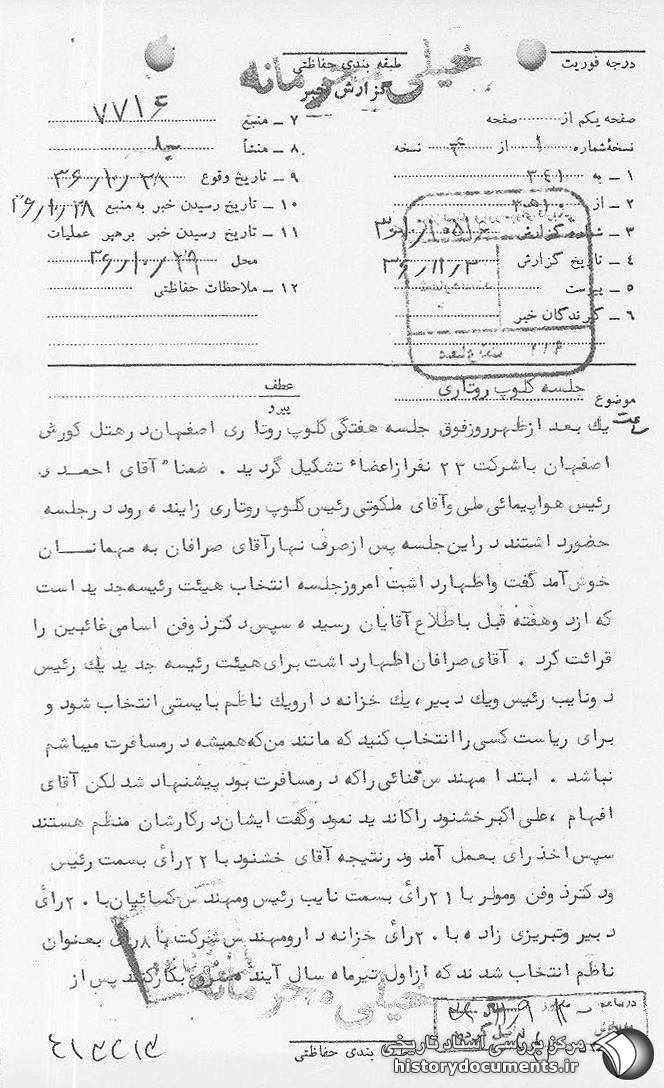 درجه فوریت
طبقه بندی حفاظتی
خیلی محرمانه
گزارش خبر
صفحه یکم از صفحه
نسخهٔ شماره ۱ از نسخه
۱ ـ به ۳۴۱
۲ ـ از
۳ ـ شماره گزارش
۴ ـ تاریخ گزارش ۳۶/۱۱/۳
۵ ـ پیوست
۶ ـ گیرندگان خبر
۷ ـ منبع ۷۷۱۶
۸ ـ منشأ
۹ ـ تاریخ وقوع ۳۶/۱۰/۲۸
۱۰ ـ تاریخ رسیدن خبر به منبع ۳۶/۱۰/۲۸
۱۱ ـ تاریخ رسیدن خبر برهبر عملیات
محل ۳۶/۱۰/۲۹
۱۲ ـ ملاحظات حفاظتی
موضوع جلسه کلوپ روتاری
عطف
پیرو
ساعت یك بعد ازظهرروزفوق جلسه هفتگی کلوپ روتاری اصفهان در هتل کورش
اصفهان باشرکت ۲۳ نفرازاعضاء تشکیل گردید . ضمناً آقای احمدی
رئیس هواپیمائی ملی وآقای ملکوتی رئیس کلوپ روتاری زاینده رود درجلسه
حضورداشتند دراین جلسه پس ازصرف نهارآقای صرافان به مهمانان
خوش آمد گفت واظهارداشت امروزجلسه انتخاب هیئت رئیسه جدید است
که ازدوهفته قبل باطلاع آقایان رسیده سپس دکترذوفن اسامی غائبین را
قرائت کرد . آقای صرافان اظهارداشت برای هیئت رئیسه جدید یك رئیس
دونایب رئیس ویك دبیر، یك خزانه دارویك ناظم بایستی انتخاب شود و
برای ریاست کسی راانتخاب کنید که مانند من که همیشه درمسافرت میباشم
نباشد . ابتدا مهندس قنائی راکه درمسافرت بود پیشنهاد شد لکن آقای
افهام ، علی اکبرخشنود راکاندید نمود وگفت ایشان درکارشان منظم هستند
سپس اخذ رای بعمل آمد ودرنتیجه آقای خشنود با ۲۲ رأی بسمت رئیس
ودکترذوفن ومولر با ۲۱ رأی بسمت نایب رئیس ومهندس کسائیان با ۲۰ رأی
دبیر وتبریزی زاده با ۲۰ رأی خزانه دارومهندس شرکت با ۸ رأی بعنوان
ناظم انتخاب شدند که ازاول تیرماه سال آینده شروع بکارکنند پس از
خیلی محرمانه
طبقه بندی حفاظتی
مرکز بررسی اسناد تاریخی
historydocuments.ir